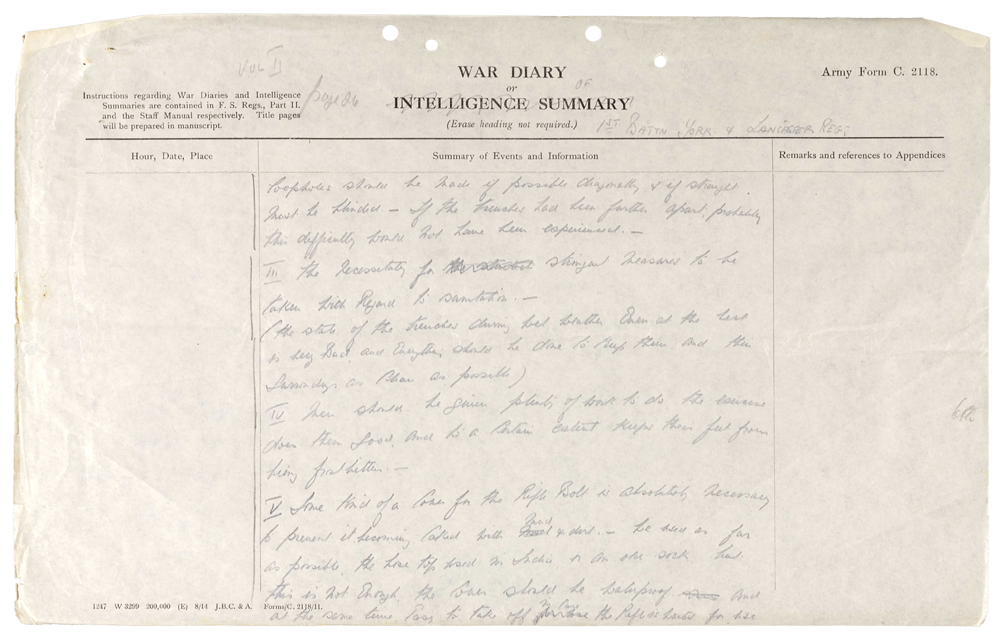 VOL II
WAR DIARY
or
OF
INTELLIGENCE SUMMARY
(Erase heading not required.)
Army Form C. 2118.
Instructions regarding War Diaries and Intelligence
Summaries are contained in F. S. Regs., Part II.
and the Staff Manual respectively. Title pages
will be prepared in manuscript.
page 26
1ST BATTN YORK & LANCASTER REGT
Hour, Date, Place
Summary of Events and Information
Remarks and references to Appendices
loopholes should be made if possible diagonally & if straight
must be blinded — If the trenches had been further apart, probably
this difficulty would not have been experienced. —
III the necessity for stringent measures to be
taken with regard to sanitation. —
(the state of the trenches during wet weather even at the best
is very bad, and everything should be done to keep them and their
surroundings as clean as possible)
IV Men should be given plenty of work to do the exercise
does them good, and to a certain extent keeps their feet from
being frostbitten. —
6th
V Some kind of a cover for the Rifle Bolt is absolutely necessary
to prevent it becoming caked with mud & dirt. — We used as far
as possible, the hose tops used in India or an old sock but
this is not enough, the cover should be waterproof and
at the same time easy to take off the Rifle for use
1247 W 3299 200,000 (E) 8/14 J.B.C. & A. Forms/C. 2118/11.